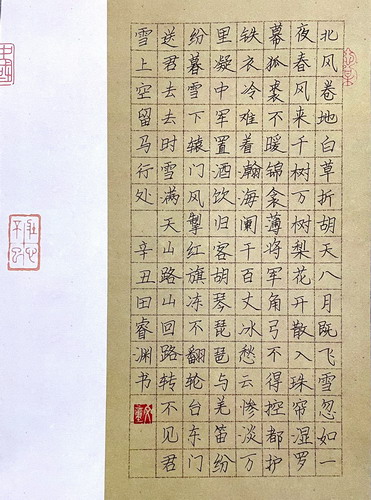 北风卷地白草折胡天八月既飞雪忽如一
夜春风来千树万树梨花开散入珠帘湿罗
幕狐裘不暖锦衾薄将军角弓不得控都护
铁衣冷难着瀚海阑干百丈冰愁云惨淡万
里凝中军置酒饮归客胡琴琵琶与羌笛纷
纷暮雪下辕门风掣红旗冻不翻轮台东门
送君去去时雪满天山路山回路转不见君
雪上空留马行处
辛丑田睿渊书